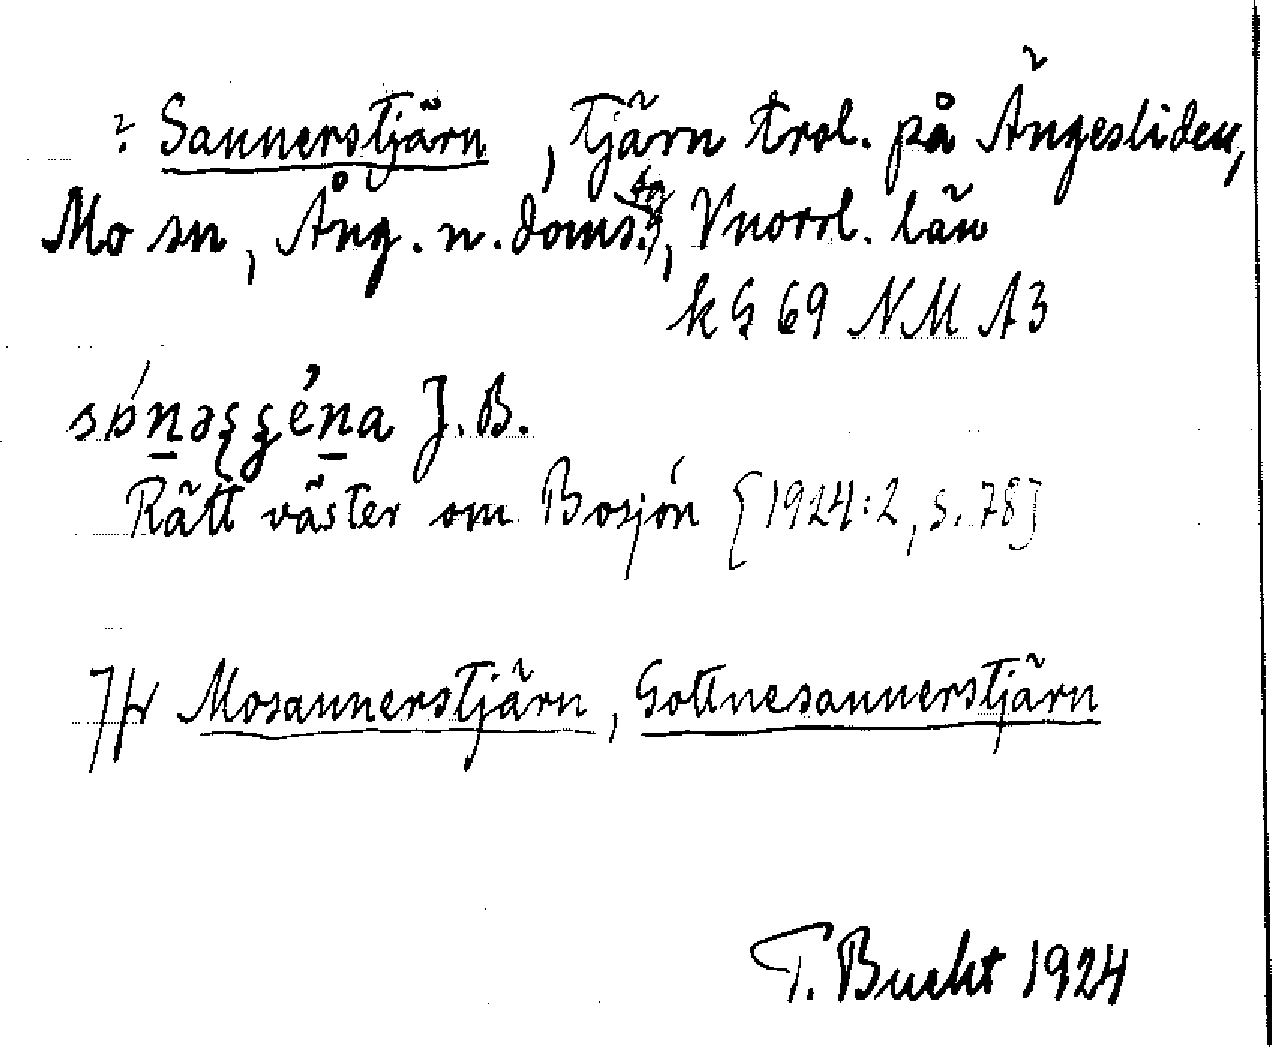 ? Sannerstjärn, tjärn trol. på Ängesliden,
Mo sn, Ång. n. doms.sg, Vnorrl. län
kG 69 NM A3
J. B.
Rätt väster om Bosjön [1924:2, s. 78]
Jfr Mosannerstjärn, Gottnesannerstjärn
T. Bucht 1924